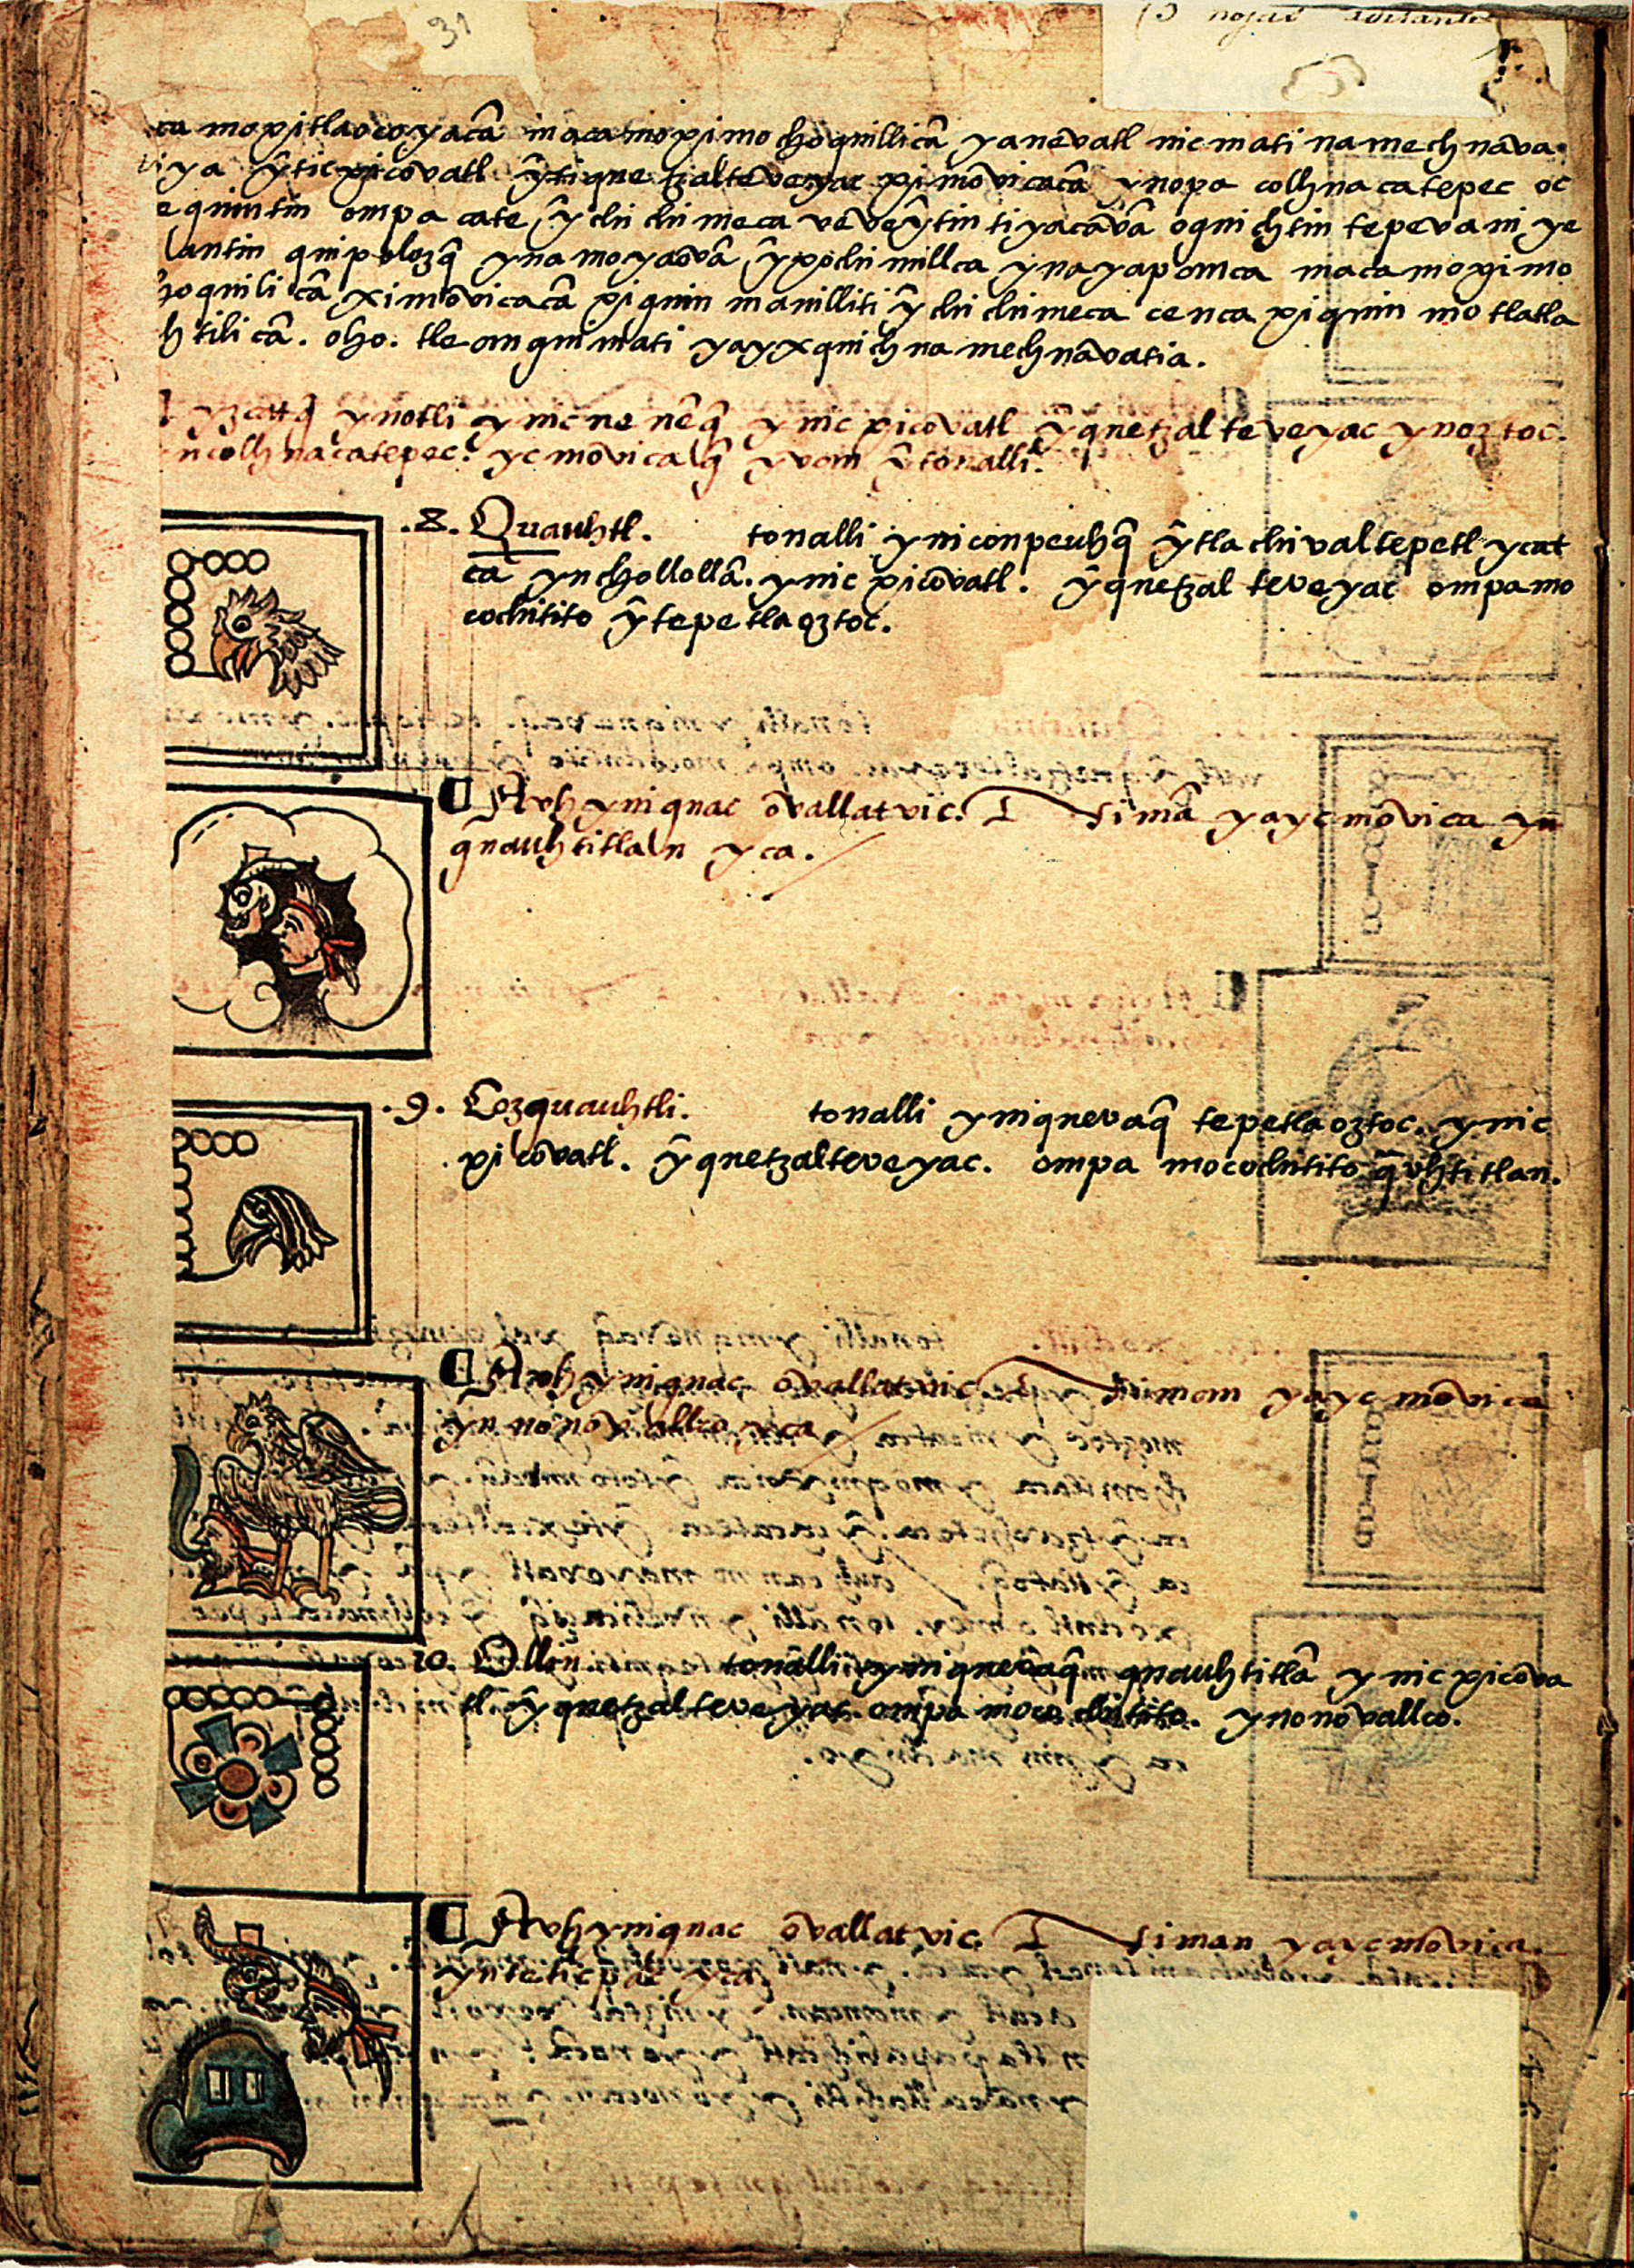 31
ca moxitlaocoyacā macamoximochoquillicā yanēvatl nicmati namechnāva
ya ŷticxicōvatl ŷtiquetzalteveyac ximōvicacā ynopa collhuacatepec oc
equintin ompa cate ŷchichimeca vevēŷtin tiyacāvā oquichtin tepevani ye
lantin quipolozq̄ ynamoyaōvā ŷxochimillca ynayapanca macamoximo
hoquilicā ximōvicacā xiquinmanilliti ŷchichimeca cenca xiquinmotlatla
htilicā. oho. tleanquimati yayxquichnamechnāvatia.
yzcatq̄ ynotli ynicnenēq̄ ynic xicōvatl ŷquetzalteveyac ynoztoc.
ncollhuacatepec. ycmōvicalq̄ yvan ŷtonalli.
.8. Quauhtl. tonalli yniconpeuhq̄ ŷtlachivaltepetl ycat
cā ynchollollā. ynic xicōvatl. ŷquetzalteveyac ompamo
cochitito ŷtepetlaoztoc.
Auh yniquac ōvallatvic. I Nimā yaycmōvica yn
quauhtitlan yca.
.9. Cozquauhtli. tonalli yniquevaq̄ tepetlaoztoc. ynic
xicōvatl. ŷquetzalteveyac. ompa mocochitito q̄vhtitlan.
Auh yniquac ōvallatvic I Niman yaycmōvica
yn nonōvallco yca
10. Ollin tonalli yniquevaq̄ quauhtitlā ynic xicōva
tl ŷquetzalteveyac. ompa mocochitito. ynonōvallco.
Auh yniquac ōvallatvic. I Niman yaycmōvica.
ynteticpac yca